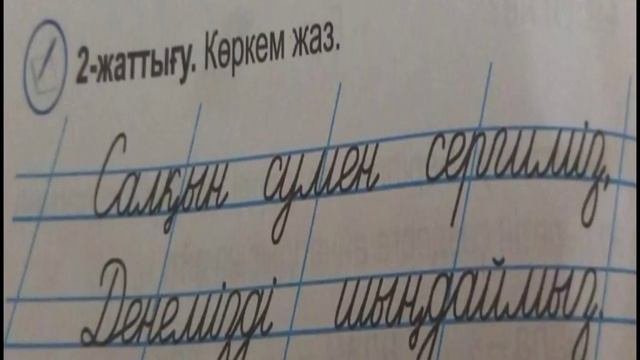 2-жаттығу. Көркем жаз.
Салқын сумен сергиміз,
Денемізді шыңдаймыз.